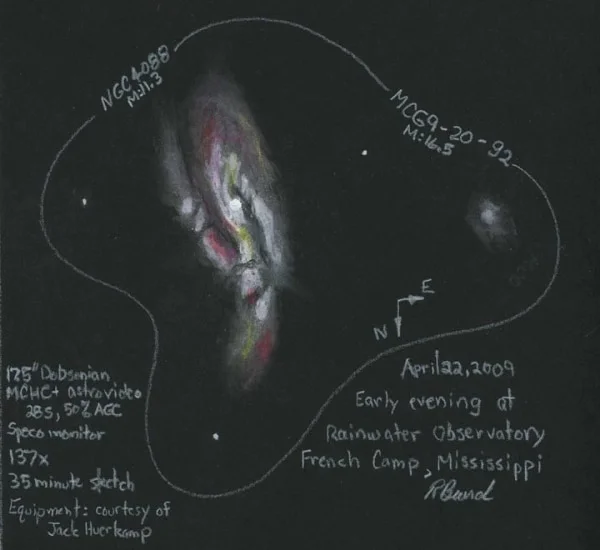 NGC4088
M:11.3
MCG9-20-92
M:16.5
E
N
April 22, 2009
Early evening at
Rainwater Observatory
French Camp, Mississippi
12.5" Dobsonian
MCHC+ astrovideo
28s, 50% AGC
Speco monitor
137x
35 minute sketch
Equipment: courtesy of
Jack Huerkamp